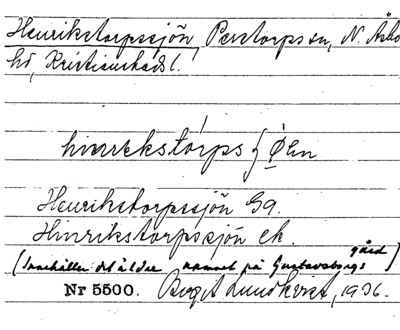 Henrikstorpssjön, Perstorps sn, N. Åsbo
hd, Kristianstads l.
hinrekstórps
Henrikstorpssjön Ga.
Hinrikstorpssjön ek.
(Innehåller det äldre namnet på Gustavsborgs gård)
Nr 5500. Birgit Lundkvist, 1936.